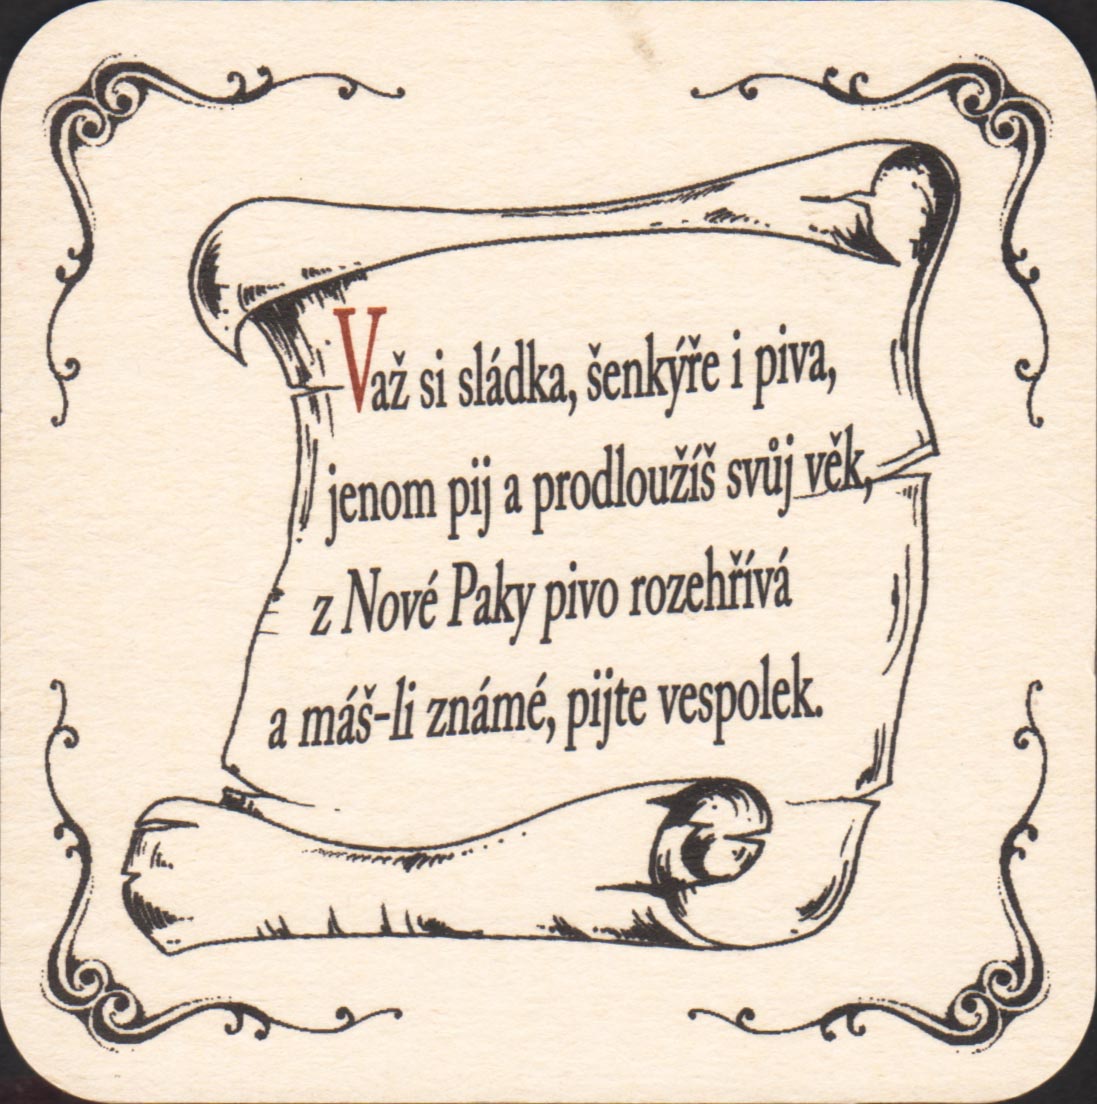 Važ si sládka, šenkýře i piva,
jenom pij a prodloužíš svůj věk,
z Nové Paky pivo rozehřívá
a máš-li známé, pijte vespolek.